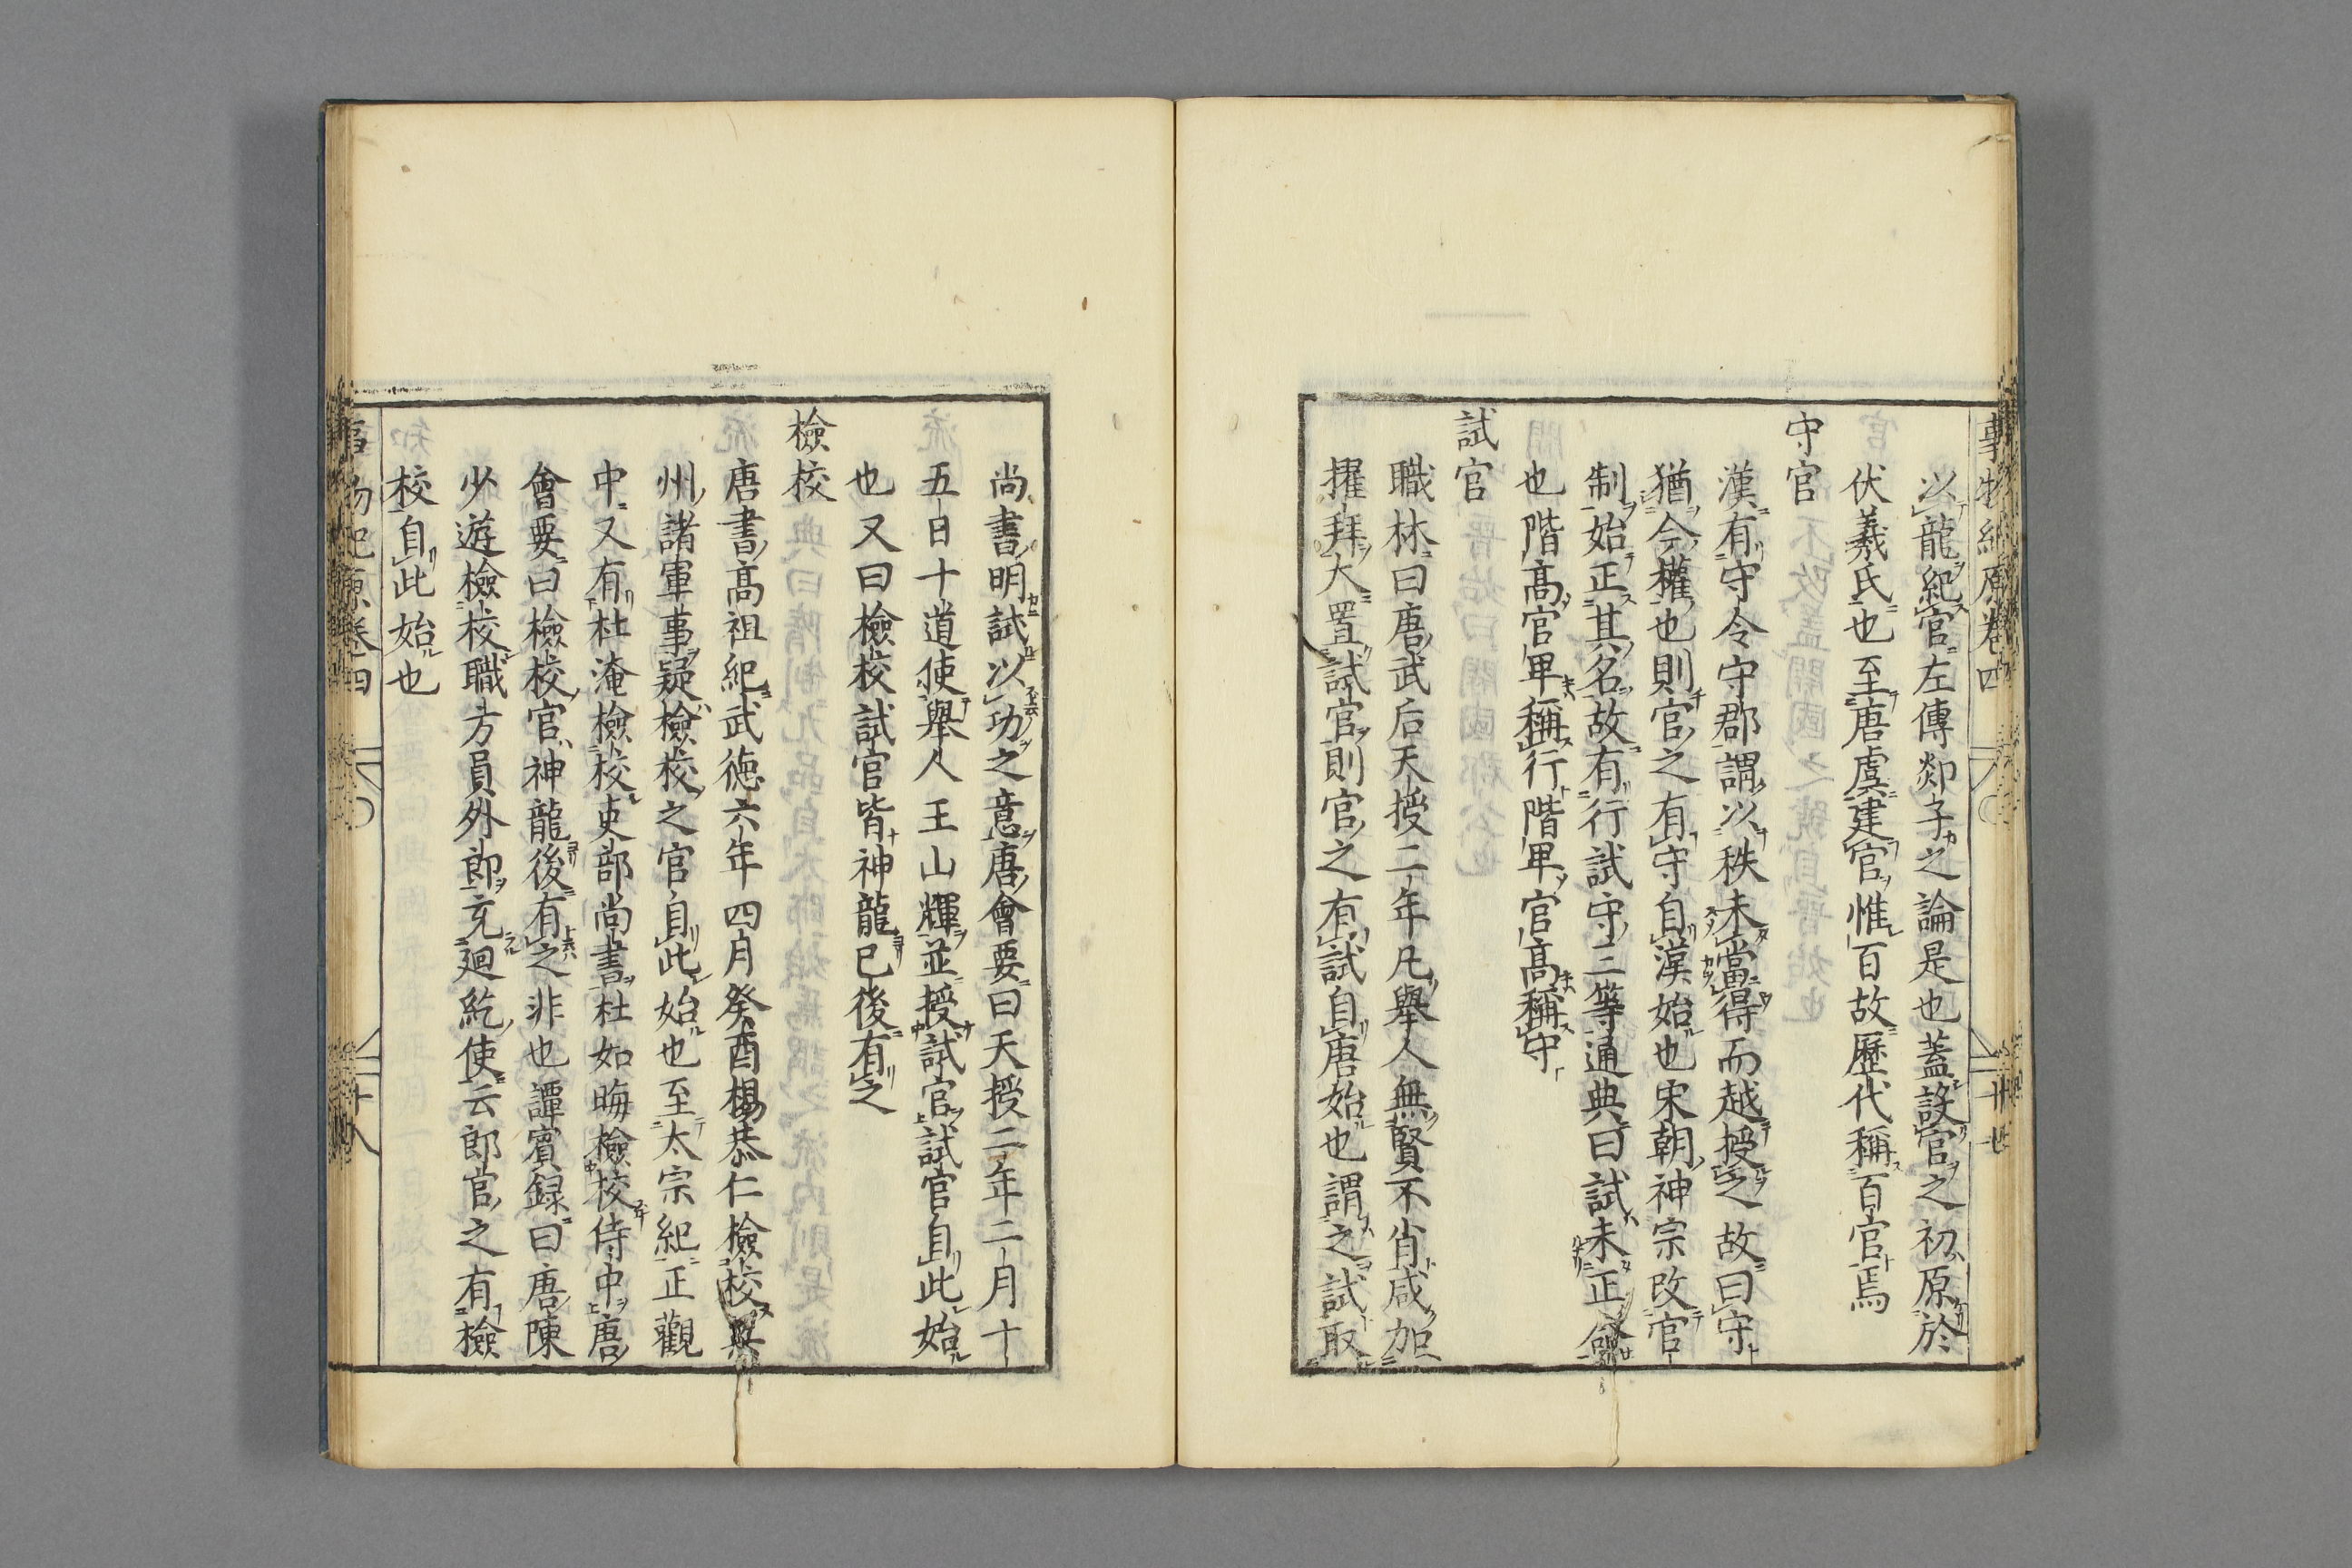 事物紀原卷四
以龍紀官左傳郯子之論是也蓋設官之初原於
伏羲氏也至唐虞建官惟百故歷代稱百官焉
守官
漢有守令守郡謂以秩未當得而越授之故曰守
猶今權也則官之有守自漢始也宋朝神宗改官
制始正其名故有行試守三等通典曰試未正命
也階高官卑稱行階卑官高稱守
試官
職林曰唐武后天授二年凡舉人無賢不肖咸加
擢拜大置試官則官之有試自唐始也謂之試取
尚書明試以功之意唐會要曰天授二年二月十
五日十道使舉人王山輝並授試官試官自此始
也又曰檢校試官皆神龍已後有之
檢校
唐書高祖紀武德六年四月癸酉楊恭仁檢校
州諸軍事疑檢校之官自此始也至太宗紀正觀
中又有杜淹檢校吏部尚書杜如晦檢校侍中唐
會要曰檢校官神龍後有之非也譚賓録曰唐陳
少遊檢校職方員外郎充迴紇使云郎官之有檢
校自此始也
事物紀原卷四
十八